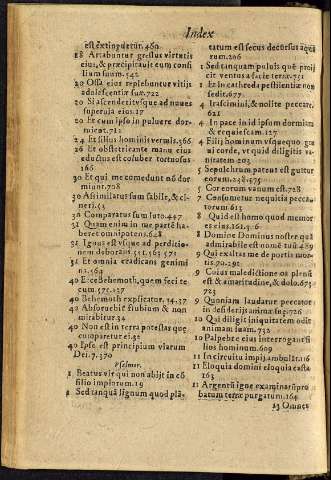 Index
est extinguetur. 460
18 Arctabuntur gressus virtutis
eius, & præcipitavit eum consi
lium suum. 542
20 Ossa eius replebuntur vitijs
adolescentiæ suæ. 722
20 Si ascenderit vsque ad nuues
superuia eius. 17
20 Et cum ipso in puluere dor-
mient. 711
24 Et filius hominis vermis. 366
26 Et obstetricante manu eius
eductus est coluber tortuosus
166
30 Et qui me comedunt nõ dor
miunt. 708
30 Assimilatus sum fauillæ, & ci-
neri. 53
30 Comparatus sum luto. 447
31 Quam enim in me partē ha-
beret omnipotens. 628
31 Ignis est vsque ad perditio
nem deuorans.
31 Et omnia eradicans genimi
na. 564
40 Ecce Behemoth, quem feci te
cum.
40 Behemoth explicatur. 34. 37
40 Absoruebit fluuium & non
mirabitur. 34
40 Non est in terra potestas quæ
comparetur ei. 32
40 Ipse est principium viarum
Dei. 7. 370
Psalmor.
1 Beatus vir qui non abijt in cõ
silio impiorum. 19
1 Sed tanquã lignum quod plã-
tatum est secus decursus aqua
rum. 206
1 Sed tanquam puluis quē proij
cit ventus a facie terræ. 751
1 Et in cathedra pestilentiæ non
sedit. 677
4 Irascimini, & nolite peccare.
621
4 In pace in id ipsum dormiam
& requiescam. 127
4 Filij hominum vsquequo gra
ui corde, vt quid diligitis va-
nitatem 203
5 Sepulchrum patens est guttur
eorum. 238. 475
5 Cor eorum vanum est. 728
7 Consumetur nequitia pecca-
torum 615
8 Quid est homo quod memor
es eius.
8 Domine Dominus noster quã
admirabile est nomē tuũ 489
9 Qui exaltas me de portis mor-
tis. 70. 91
9 Cuius maledictione os plenũ
est & amaritudine, & dolo. 673
723
9 Quoniam laudatur peccator
in desiderijs animæ suæ. 726
10 Qui diligit iniquitatem odit
animam suam. 732
10 Palpebræ eius interrogant fi
lios hominum. 609
11 In circuitu impij ambulāt. 116
11 Eloquia domini eloquia casta
163
11 Argentũ igne examinatũ pro
batum terræ purgatum. 164
13 Omnes